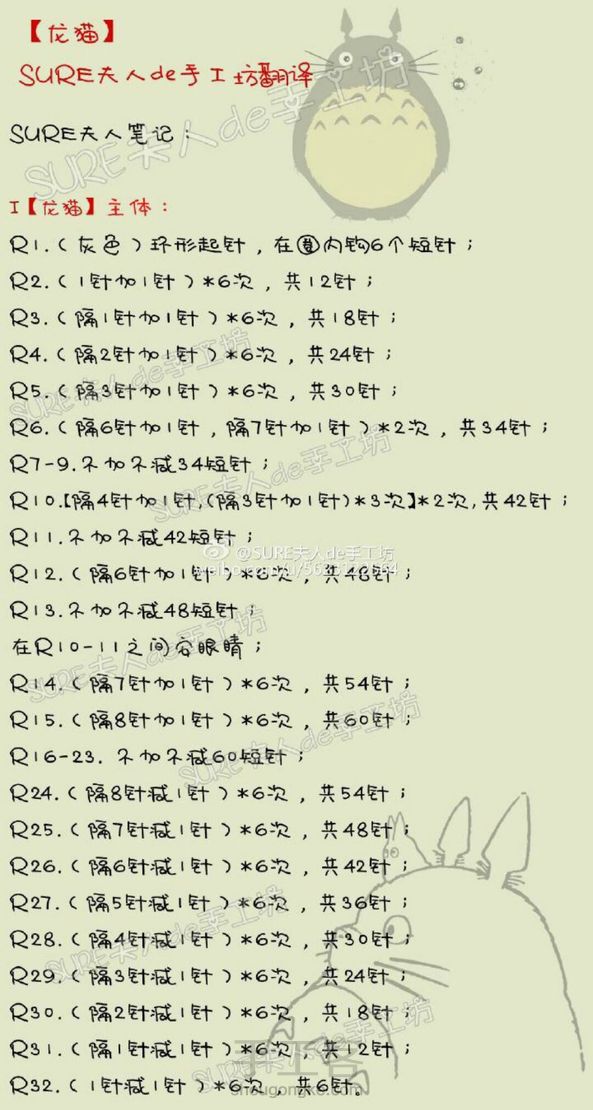 【龙猫】
SURE夫人de手工坊翻译
SURE夫人笔记:
I【龙猫】主体:
R1.(灰色)环形起针,在圈内钩6个短针;
R2.(1针加1针)*6次,共12针;
R3.(隔1针加1针)*6次,共18针;
R4.(隔2针加1针)*6次,共24针;
R5.(隔3针加1针)*6次,共30针;
R6.(隔6针加1针,隔7针加1针)*2次,共34针;
R7-9.不加不减34短针;
R10.【隔4针加1针,(隔3针加1针)*3次】*2次,共42针;
R11.不加不减42短针;
@SURE夫人de手工坊
R12.(隔6针加1针)*6次,共48针;
R13.不加不减48短针;
在R10-11之间安眼睛;
R14.(隔7针加1针)*6次,共54针;
R15.(隔8针加1针)*6次,共60针;
R16-23.不加不减60短针;
R24.(隔8针减1针)*6次,共54针;
R25.(隔7针减1针)*6次,共48针;
R26.(隔6针减1针)*6次,共42针;
R27.(隔5针减1针)*6次,共36针;
R28.(隔4针减1针)*6次,共30针;
R29.(隔3针减1针)*6次,共24针;
R30.(隔2针减1针)*6次,共18针;
R31.(隔1针减1针)*6次,共12针;
手工客
R32.(1针减1针)*6次,共6针。
shougongke.com